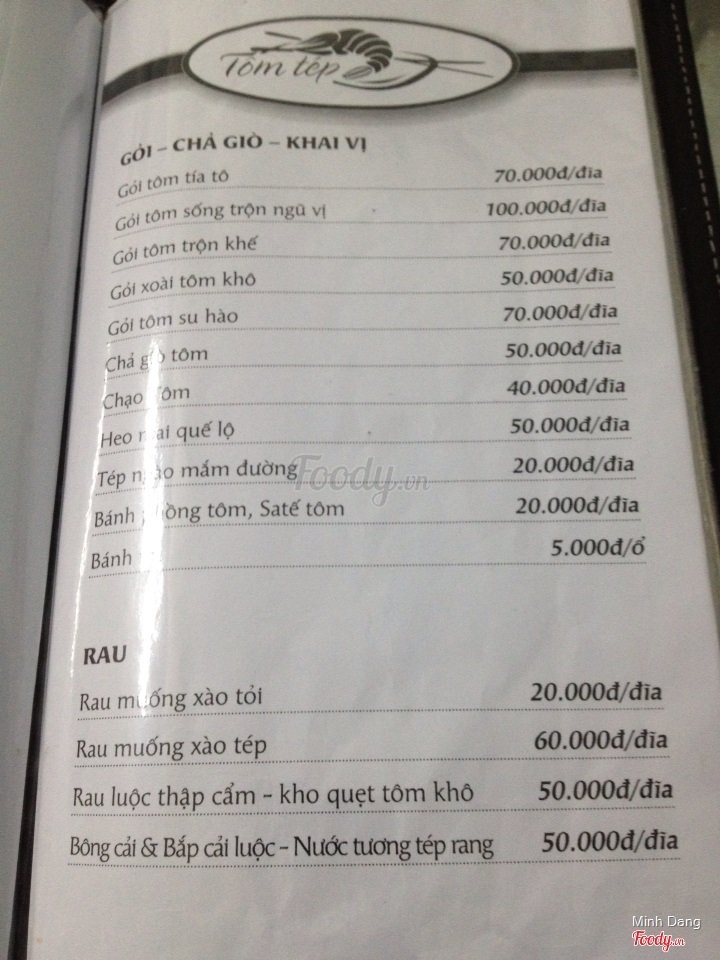 Tôm tép
GỎI – CHẢ GIÒ – KHAI VỊ
Gỏi tôm tía tô 70.000đ/đĩa
Gỏi tôm sống trộn ngũ vị 100.000đ/đĩa
Gỏi tôm trộn khế 70.000đ/đĩa
Gỏi xoài tôm khô 50.000đ/đĩa
Gỏi tôm su hào 70.000đ/đĩa
Chả giò tôm 50.000đ/đĩa
Chạo tôm 40.000đ/đĩa
Heo mai quế lộ 50.000đ/đĩa
Tép ngào mắm đường 20.000đ/đĩa
Bánh phồng tôm, Satế tôm 20.000đ/đĩa
Bánh 5.000đ/ổ
Foody.vn
RAU
Rau muống xào tỏi 20.000đ/đĩa
Rau muống xào tép 60.000đ/đĩa
Rau luộc thập cẩm – kho quẹt tôm khô 50.000đ/đĩa
Bông cải & Bắp cải luộc – Nước tương tép rang 50.000đ/đĩa
Minh Dang
Foody.vn